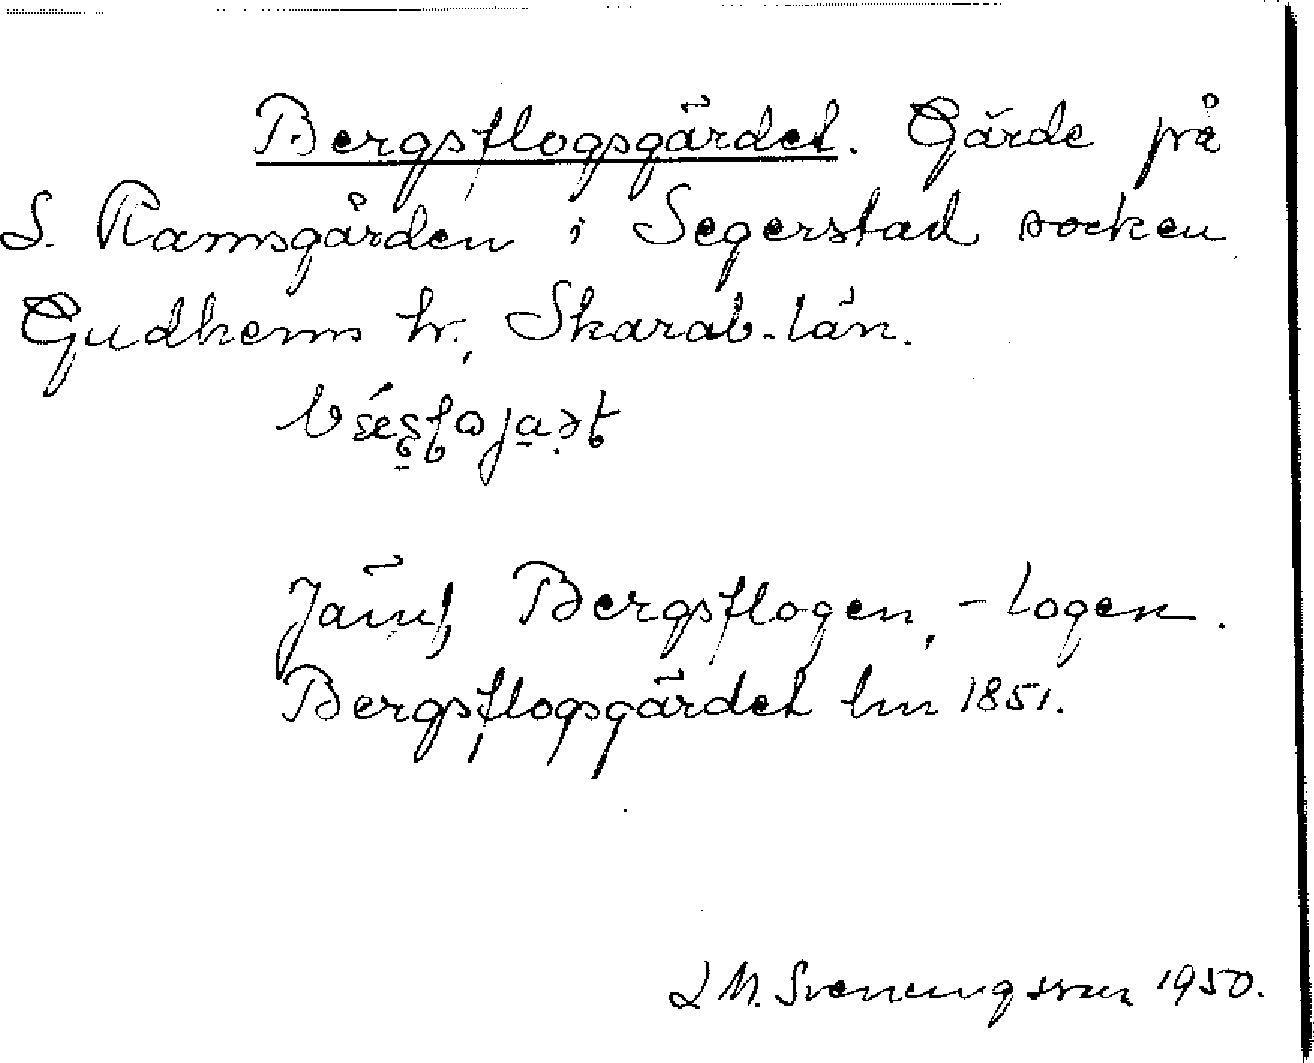 Bergsflogsgärdet. Gärde på
S. Ramsgården i Segerstad socken
Gudhems hr, Skarab. län.
Jämf, Bergsflogen, -logen.
Bergsflogsgärdet lm 1851.
L M. Svenungsson 1950.